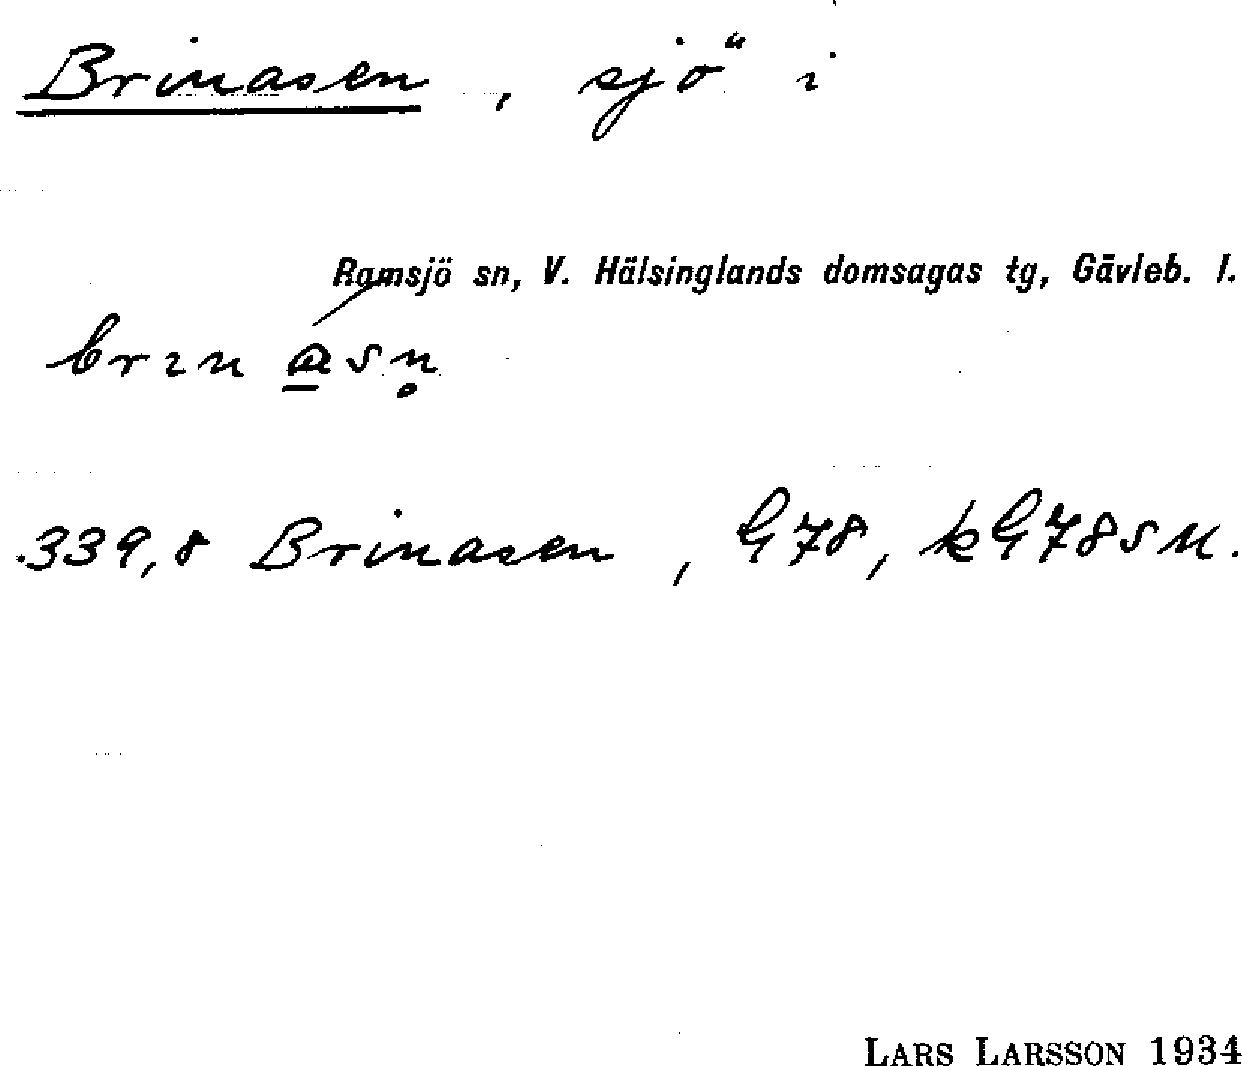 Brinasen, sjö i
Ramsjö sn, V. Hälsinglands domsagas tg, Gävleb. l.
brın a̲sn̥
339,8 Brinasen, G78, kG78SM.
LARS LARSSON 1934